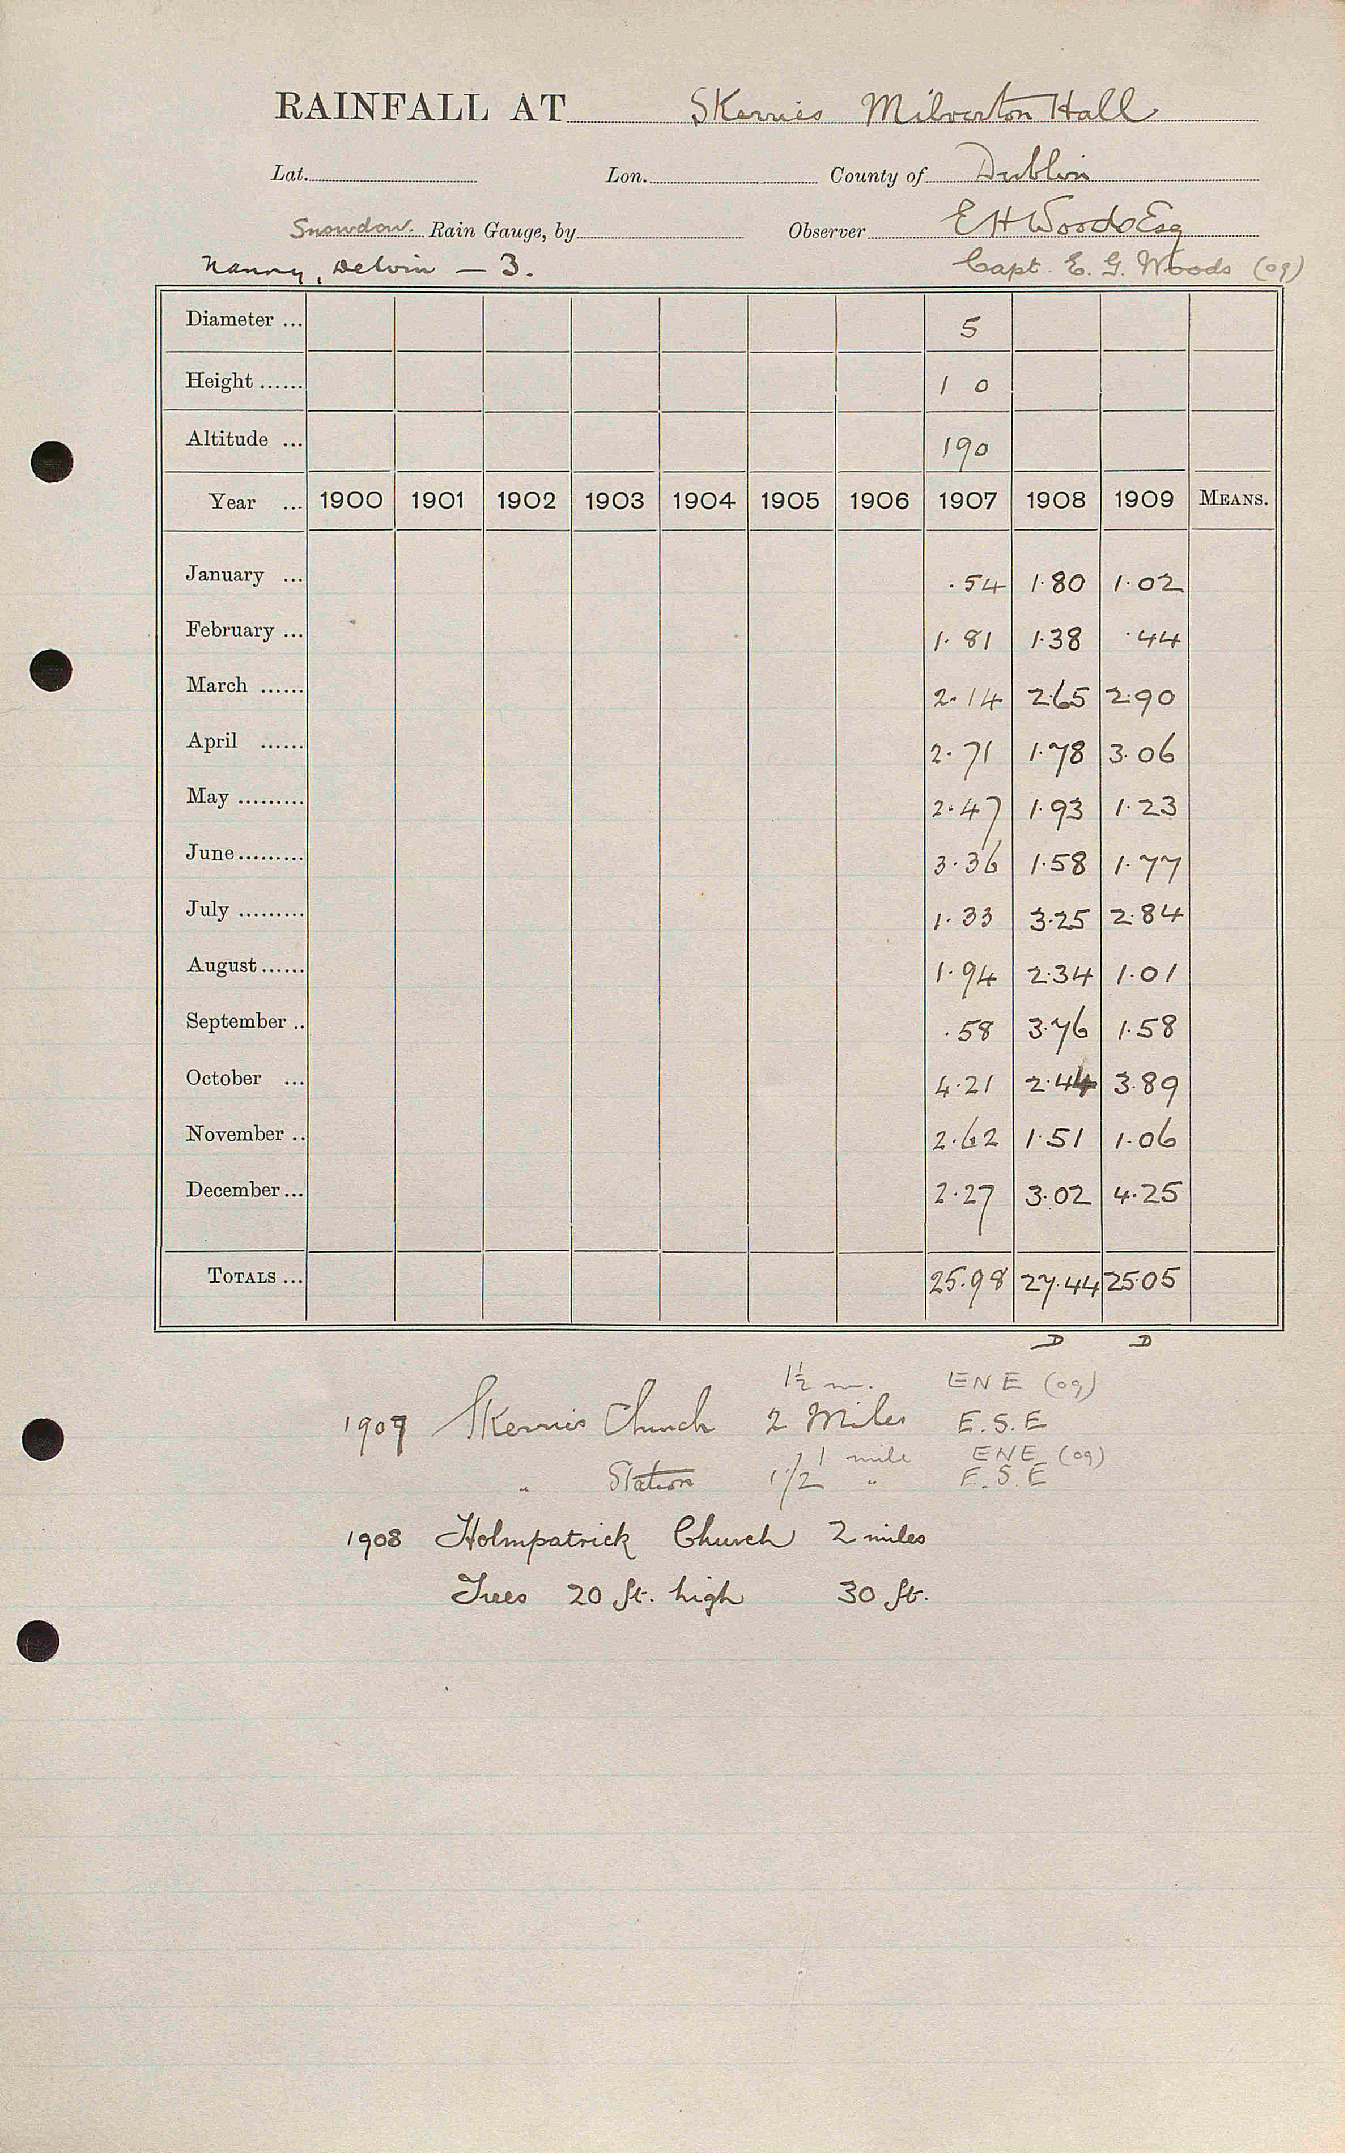 RAINFALL AT Skerries Milverton Hall
Lat. Lon. County of Dublin
Snowdon Rain Gauge, by Observer E H Woods Esq
Nanny, Delvin — 3. Capt. E. G. Woods (09)
Diameter ... 5
Height ...... 1 0
Altitude ... 190
Year ... 1900 1901 1902 1903 1904 1905 1906 1907 1908 1909 MEANS.
January ... .54 1.80 1.02
February ... 1.81 1.38 .44
March ...... 2.14 2.65 2.90
April ...... 2.71 1.78 3.06
May ......... 2.47 1.93 1.23
June ......... 3.36 1.58 1.77
July ......... 1.33 3.25 2.84
August ...... 1.94 2.34 1.01
September .. .58 3.76 1.58
October ... 4.21 2.44 3.89
November .. 2.62 1.51 1.06
December ... 2.27 3.02 4.25
TOTALS ... 25.98 27.44 25.05
D D
1½ m. ENE (09)
1907 Skerries Church 2 Miles E.S.E
1 mile ENE (09)
" Station 1 1/2 " E.S.E
1908 Holmpatrick Church 2 miles
Trees 20 ft. high 30 ft.